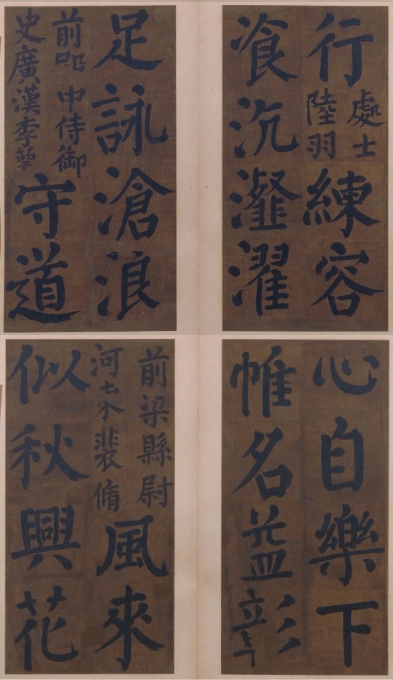 行處士
陸羽練容
飡沆瀣濯
足詠滄浪
前殿中侍御
史廣漢李萼守道
心自樂下
帷名益彰
前梁縣尉
河東裴脩風來
似秋興花